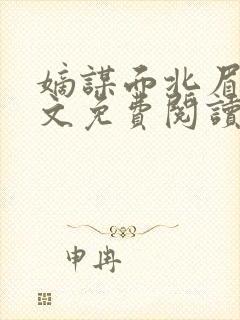 嫡謀而北眉
文免費閱讀
申冉